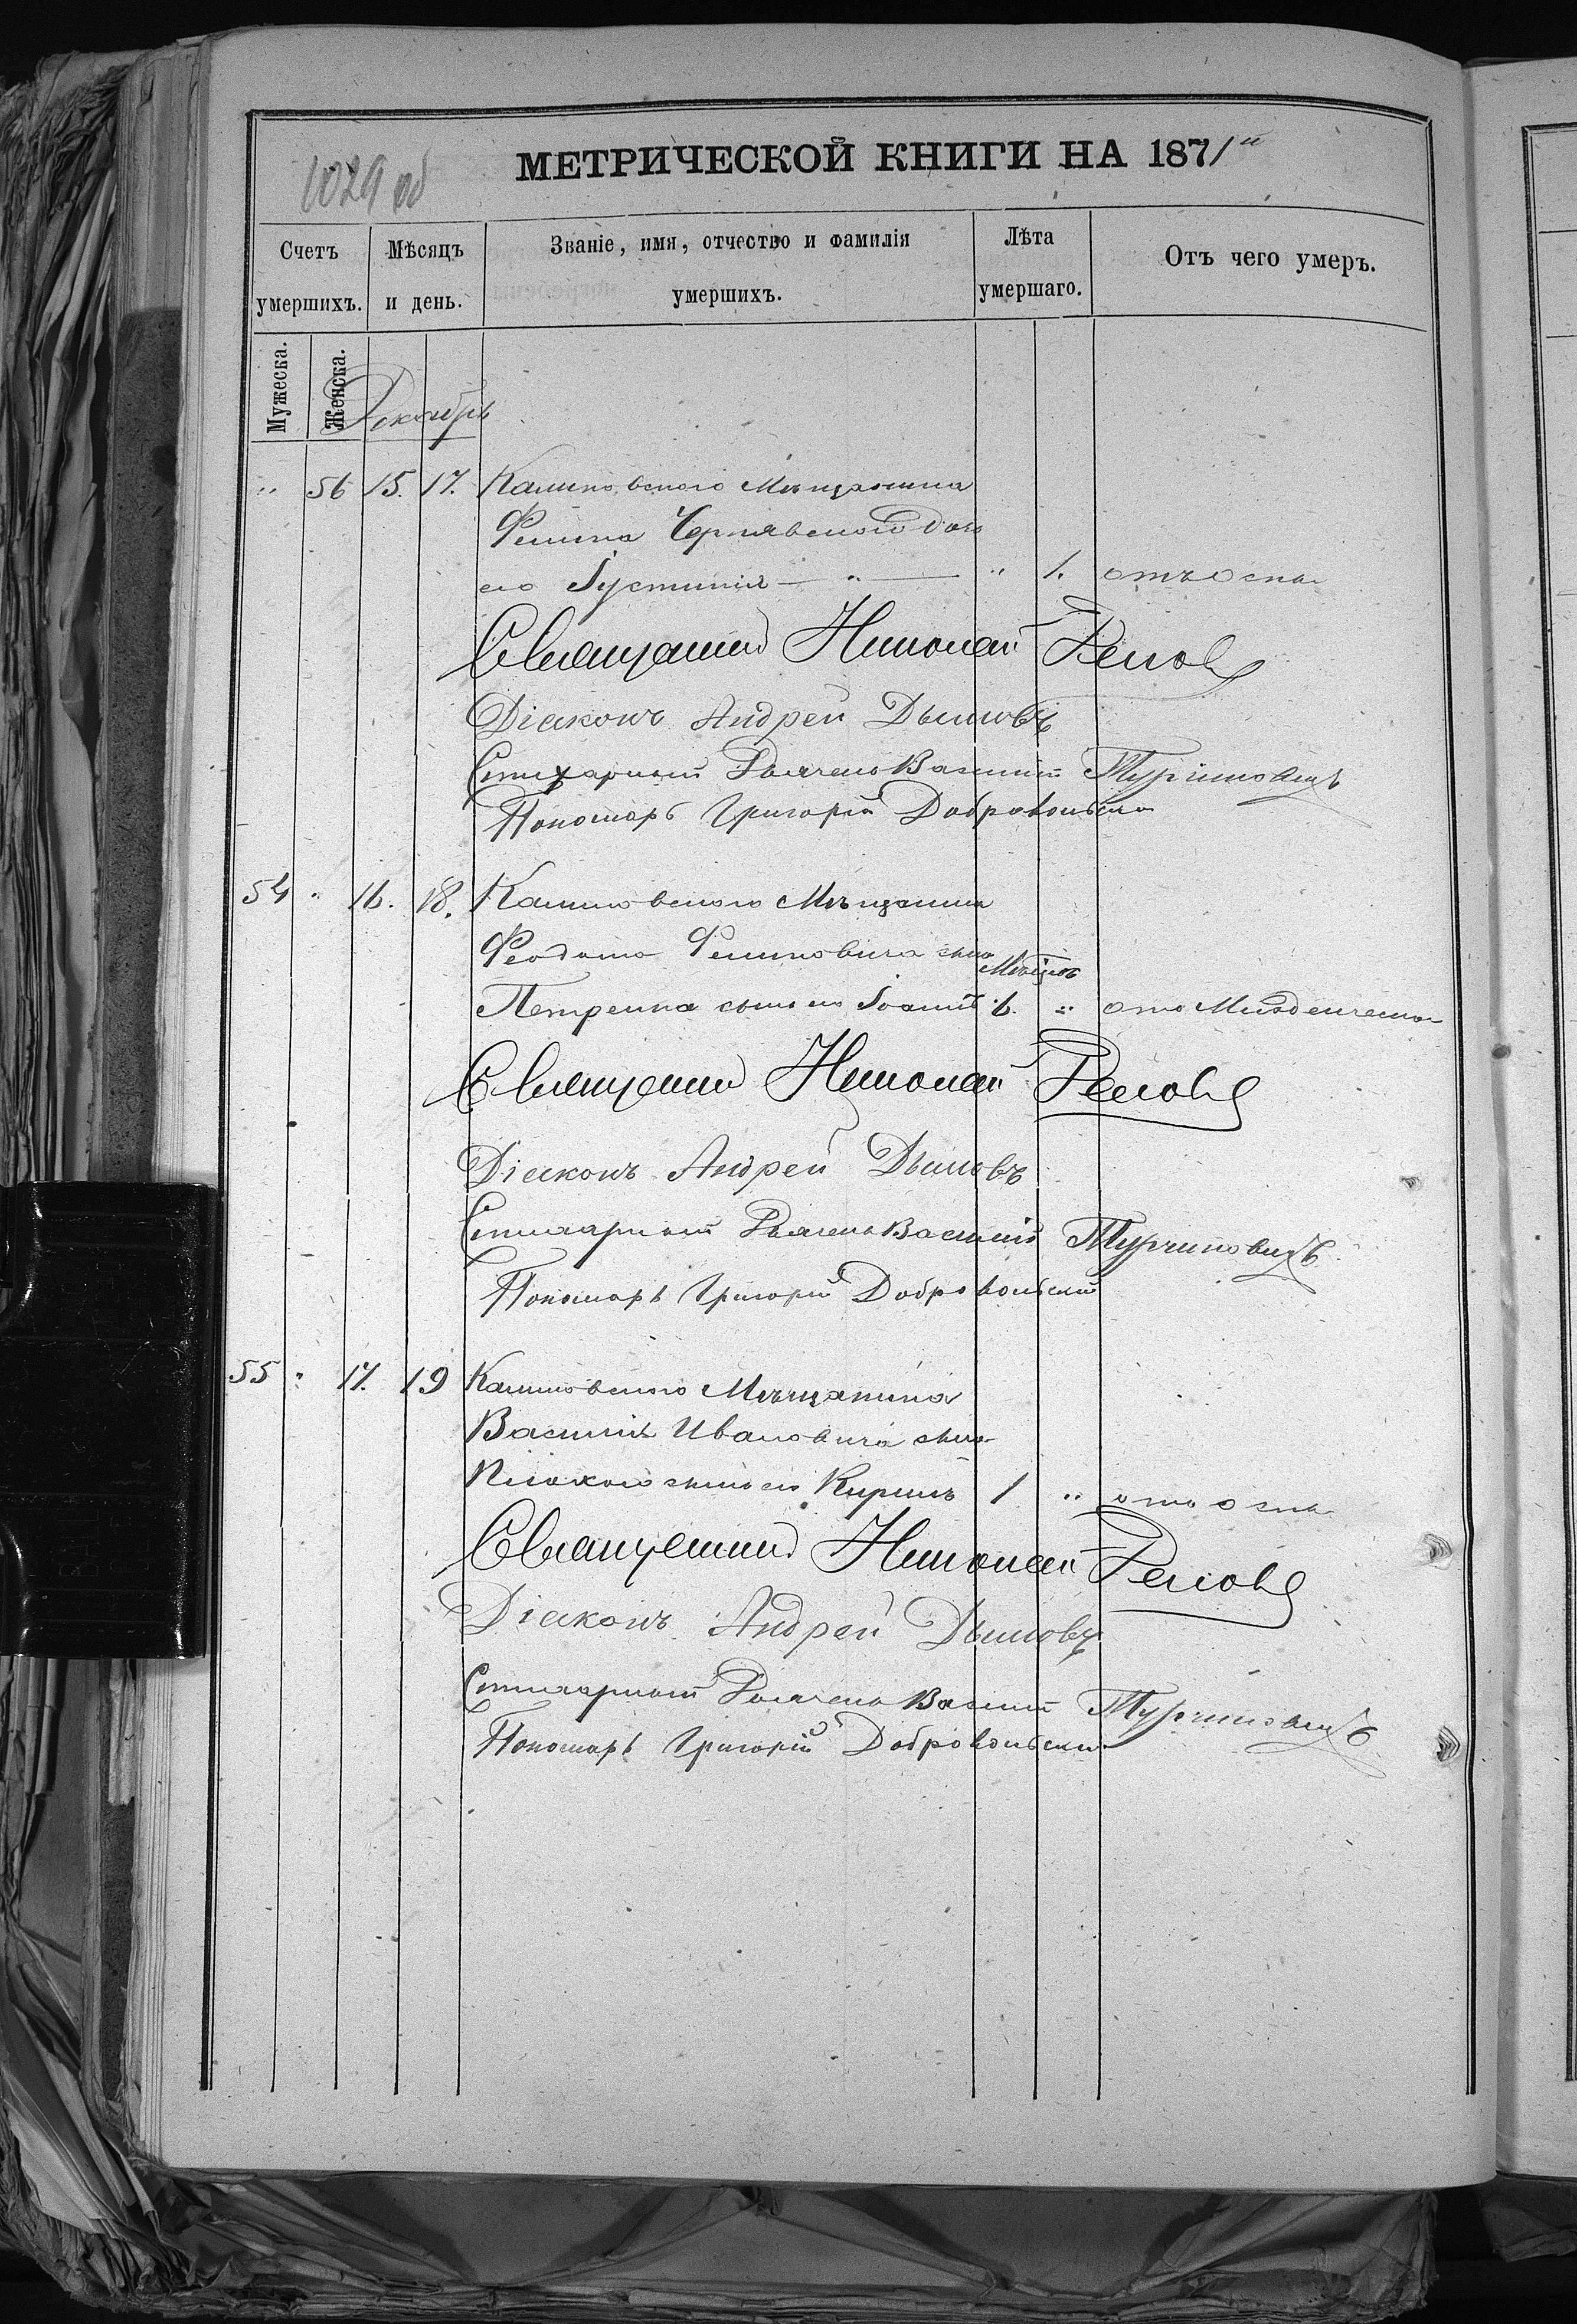 1029 об
МЕТРИЧЕСКОЙ КНИГИ НА 1871й
Счетъ умершихъ.
Мѣсяцъ и день.
Званіе, имя, отчество и фамилія умершихъ.
Лѣта умершаго.
Отъ чего умеръ.
Мужеска.
Женска.
Декабрь
" 56 15. 17. Мѣщанина
Чернявского дочь
его Іустинія — " — " 1. отъ оспы
Священникъ Николай
Діаконъ Андрей Дымовъ
Стихарный Дьячекъ Василій Турчиновичъ
Пономарь Григорій Добровольскій
54 " 16. 18. Мѣщанина
Феодота Филиповича сына Мѣсяцовъ
Петренка сынъ его Іоаннъ 6. " отъ Младенческой
Священникъ Николай
Діаконъ Андрей Дымовъ
Стихарный Дьячекъ Василій Турчиновичъ
Пономарь Григорій Добровольскій
55 " 17. 19 Мѣщанина
Василія Ивановича сына
сынъ его Кирилъ 1 " отъ оспы
Священникъ Николай
Діаконъ Андрей Дымовъ
Стихарный Дьячекъ Василій Турчиновичъ
Пономарь Григорій Добровольскій